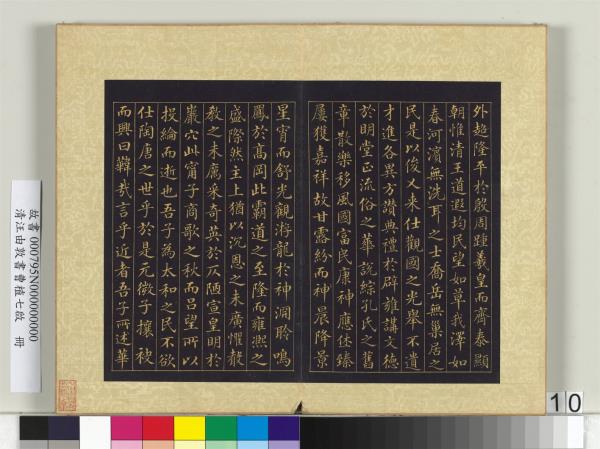 外超隆平於殷周踵羲皇而齊泰顯
朝惟清王道遐均民望如草我澤如
春河濱無洗耳之士喬岳無巢居之
民是以俊乂来仕觀國之光舉不遺
才進各異方讚典禮於辟雍講文德
於明堂正流俗之華說綜孔氏之舊
章散樂移風國富民康神應休臻
屢獲嘉祥故甘露紛而神晨降景
星宵而舒光觀游龍於神淵聆鳴
鳳於高岡此霸道之至隆而雍熙之
盛際然主上猶以沉恩之未廣懼聲
教之未厲采奇英於仄陋宣皇明於
巖穴此甯子商歌之秋而呂望所以
投綸而逝也吾子為太和之民不欲
仕陶唐之世乎於是元微子攘袂
而興曰韡哉言乎近者吾子所述華
故書 000795N000000000
清汪由敦書曹植七啟 冊
10